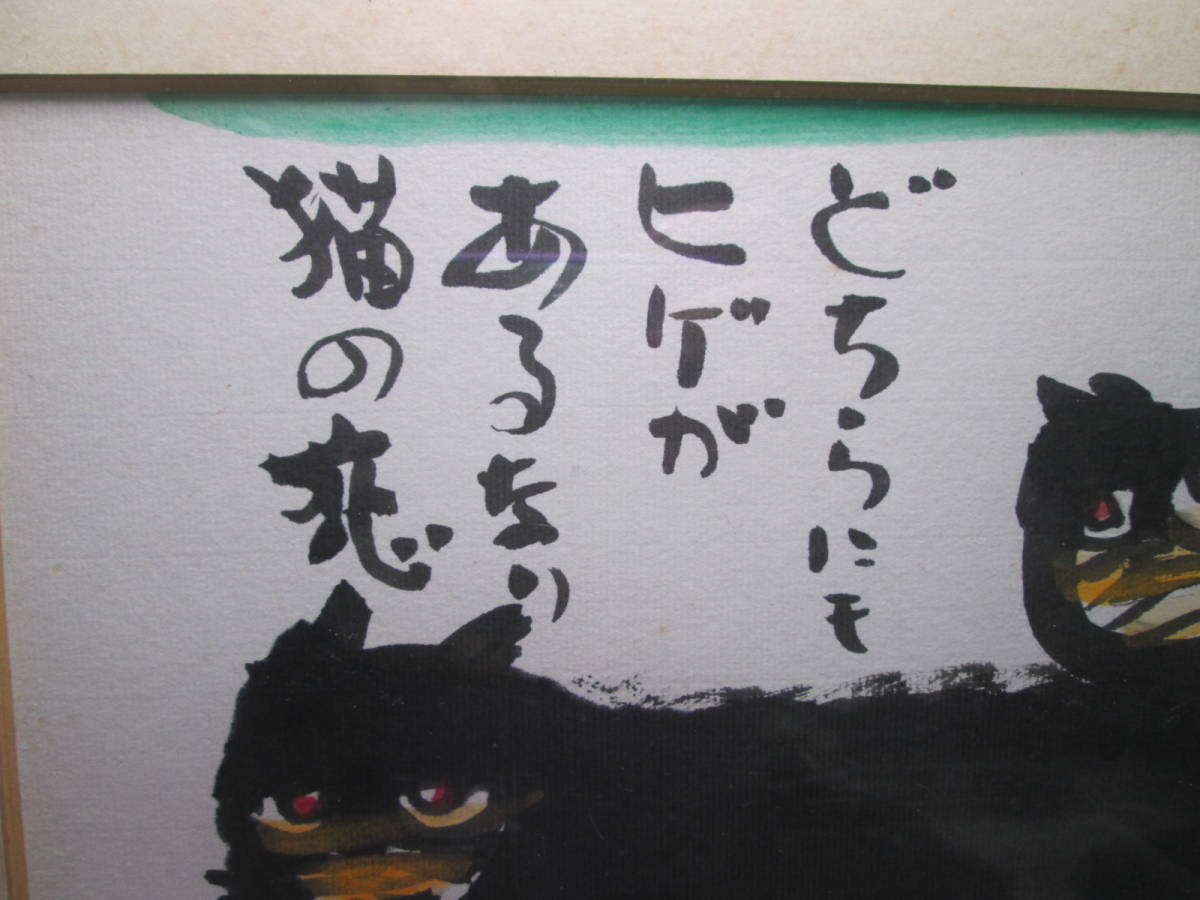 どちらにも
ヒゲが
あるなり
猫の恋